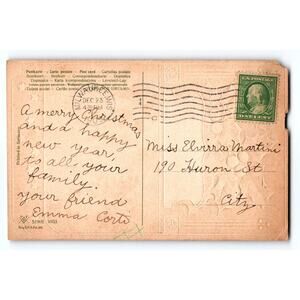 Postkarte
Post card
MILWAUKEE, WIS.
DEC 23
U.S. POSTAGE
ONE CENT
A merry Christmas
and a happy
new year
to all your
family.
your friend
Emma Corti
Miss Elvira Martini
190 Huron St
City
SERIE